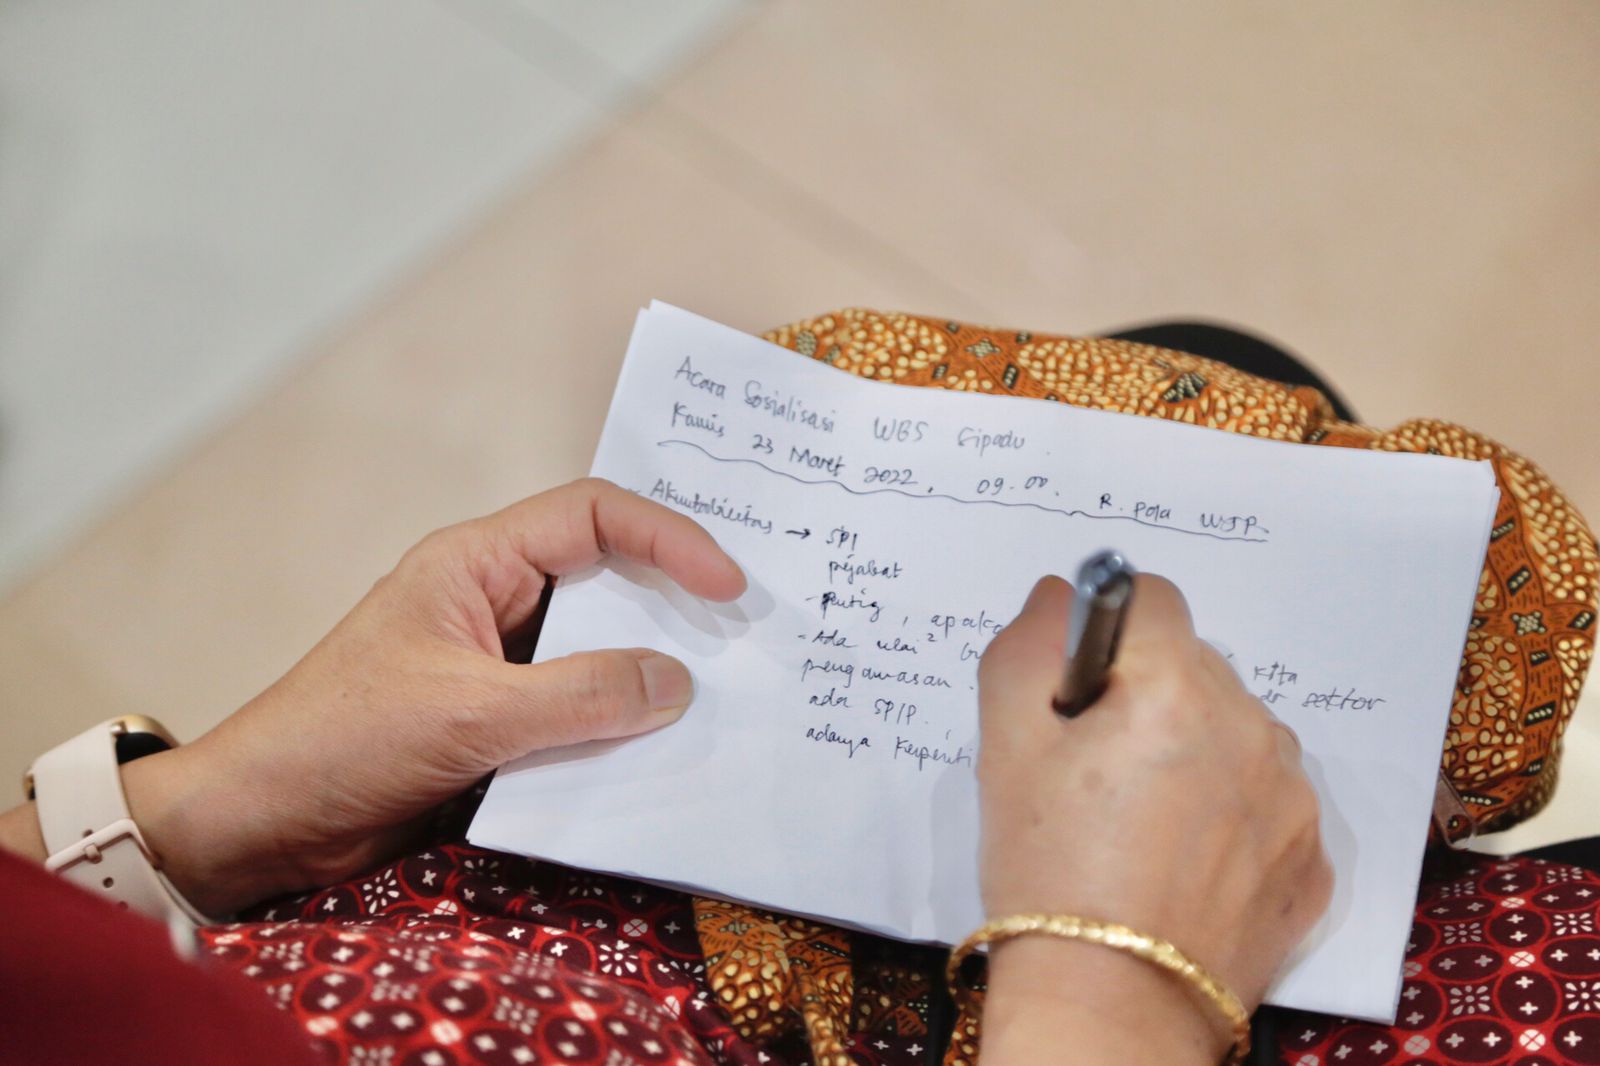 Acara Sosialisasi WBS Sipadu.
Kamis 23 Maret 2022, 09.00. R. Pola WJP.
- Akuntabilitas → SPI
pejabat
- penting, apaka
- Ada nilai² kita
pengawasan. sektor
ada SPIP.
adanya